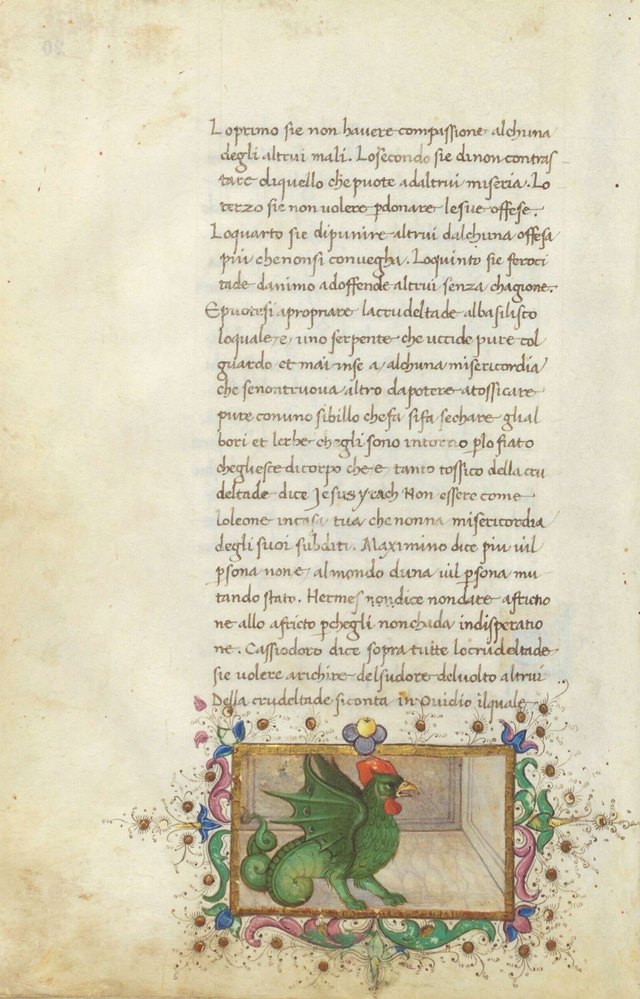 Loprimo sie non havere compassione alchuna
degli altrui mali. Losecondo sie dinon contras
tare diquello che puote adaltrui miseria. Lo
terzo sie non volere pdonare lesue offese.
Loquarto sie dipunire altrui dalchuna offesa
piu chenonsi convegha. Loquinto sie feroci
tade danimo adoffende altrui senza chagione.
Epuotesi apropriare lacrudeltade albasilisco
loquale e uno serpente che uccide pure col
guardo et mai inse a alchuna misericordia
che senontruova altro dapotere atossicare
pure conuno sibillo chefa sifa sechare glial
bori et lerbe chegli sono intorno plo fiato
chegliesce dicorpo che e tanto tossico della cru
deltade dice Jesus yrach Non essere come
loleone incasa tua che nonna misericordia
degli suoi subditi. Maximino dice piu vil
psona non e almondo duna vil psona mu
tando stato. Hermes dice nondate aflictio
ne allo aflicto pchegli nonchada indisperatio
ne. Cassiodoro dice sopra tutte lecrudeltade
sie volere arichire delsudore delvolto altrui
Della crudeltade siconta in Ovidio ilquale